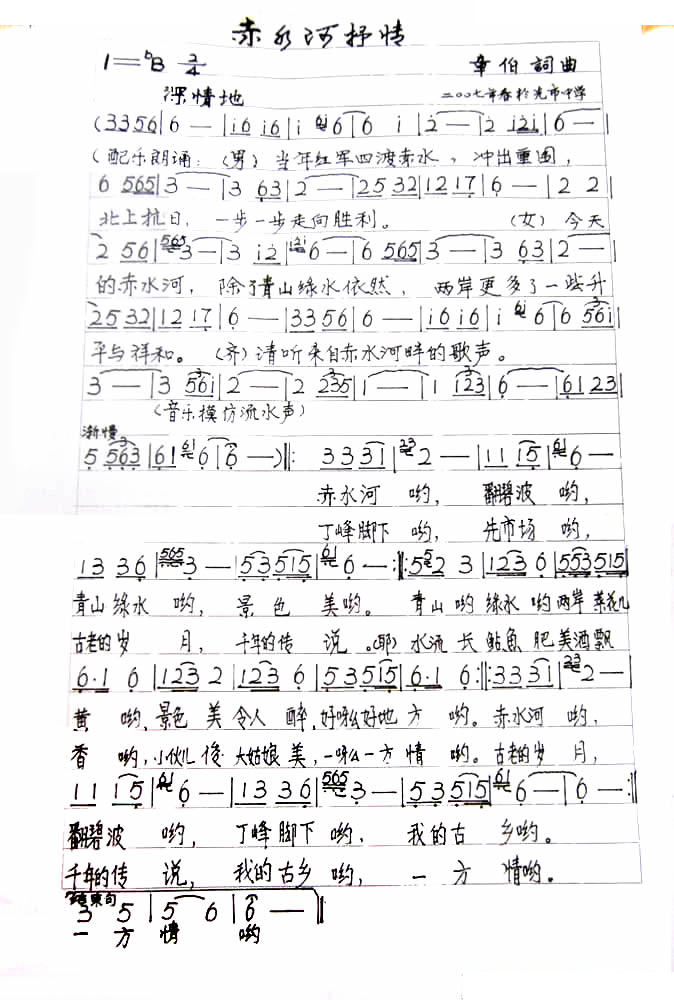 赤水河抒情
1=ᵇB 2/4 章伯詞曲
深情地 二〇〇七年春於先市中学
(3356|6 —|i6 i6|i 6|6 i|2 —|2 i2i|6 —|
(配乐朗诵:(男)当年红军四渡赤水,冲出重围,
6 565|3 —|3 63|2 —|25 32|12 17|6 —|2 2|
北上抗日,一步一步走向胜利。 (女)今天
2 56|3 —|3 i2|6 —|6 565|3 —|3 63|2 —|
的赤水河,除了青山绿水依然,两岸更多了一些升
25 32|12 17|6 —|33 56|6 —|i6 i6|i 6|6 56i|
平与祥和。(齐)请听来自赤水河畔的歌声。
3 —|3 56i|2 —|2 235|1 —|1 123|6 —|61 23|
(音乐模仿流水声)
渐慢
5 563|61 6|6 —)‖: 33 31|2 —|11 15|6 —|
赤水河 哟, 翻碧波 哟,
丁峰脚下 哟, 先市场 哟,
13 36|3 —|53 515|6 —:‖:5 2 3|123 6|553 515|
青山绿水 哟, 景色 美哟。 青山哟绿水哟两岸菜花儿
古老的岁 月, 千年的传 说。(耶)水流长鲇魚肥美酒飘
6·1 6|123 2|123 6|53 515|6·1 6:‖:33 31|2 —|
黄 哟,景色美令人醉,好呀么好地方 哟。赤水河 哟,
香 哟,小伙儿俊大姑娘美,一呀么一方情 哟。古老的岁 月,
11 15|6 —|13 36|3 —|53 515|6 —|6 —:‖
翻碧波 哟, 丁峰脚下 哟, 我的古 乡哟。
千年的传 说, 我的古乡 哟, 一 方 情哟。
结束句
3 5|5 6|6 —‖
一 方 情 哟